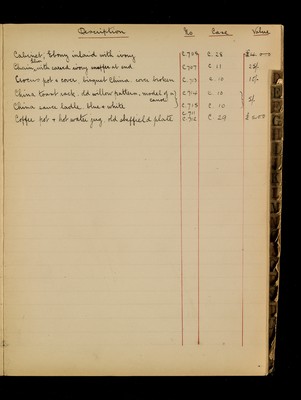 Description No. Case Value
Cabinet, Ebony inlaid with ivory C.708 C. 28 £20.0.0
Chain, with carved ivory at end C.707 C. 11 25/-
pot & cover, biscuit China cover broken C.713 C. 10 12/-
China toast rack, old willow pattern, model of a C.714 C. 10
canoe 5/-
China sauce ladle, blue & white C.715 C. 10
C.711
Coffee pot & hot water jug, old sheffield plate C.712 C. 29 £ 2.0.0